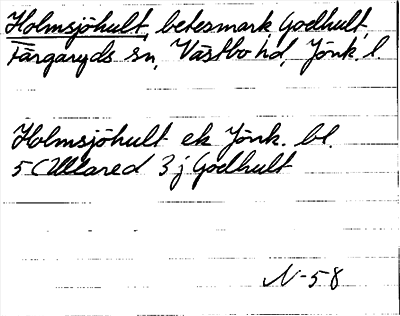 Holmsjöhult, betesmark, Godhult,
Färgaryds sn, Västbo hd, Jönk. l.
Holmsjöhult ek Jönk. bl.
5 C Ullared 3 j Godhult
N-58